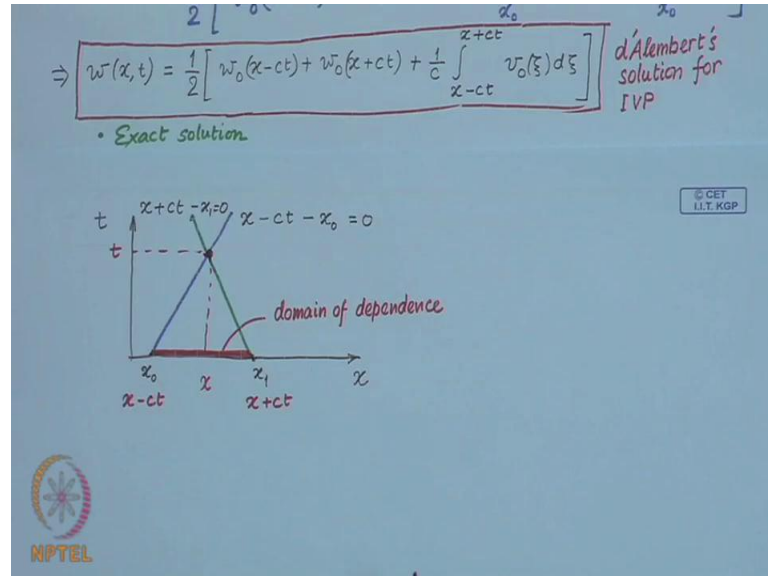 2 [
x₀ x₀ ]
⇒ w(x,t) = 1/2 [ w₀(x-ct) + w₀(x+ct) + 1/c ∫_{x-ct}^{x+ct} v₀(ξ)dξ ]
d'Alembert's
solution for
IVP
• Exact solution
© CET
I.I.T. KGP
x+ct-x₁=0
x-ct-x₀=0
t
t
domain of dependence
x₀ x x₁ x
x-ct x+ct
NPTEL